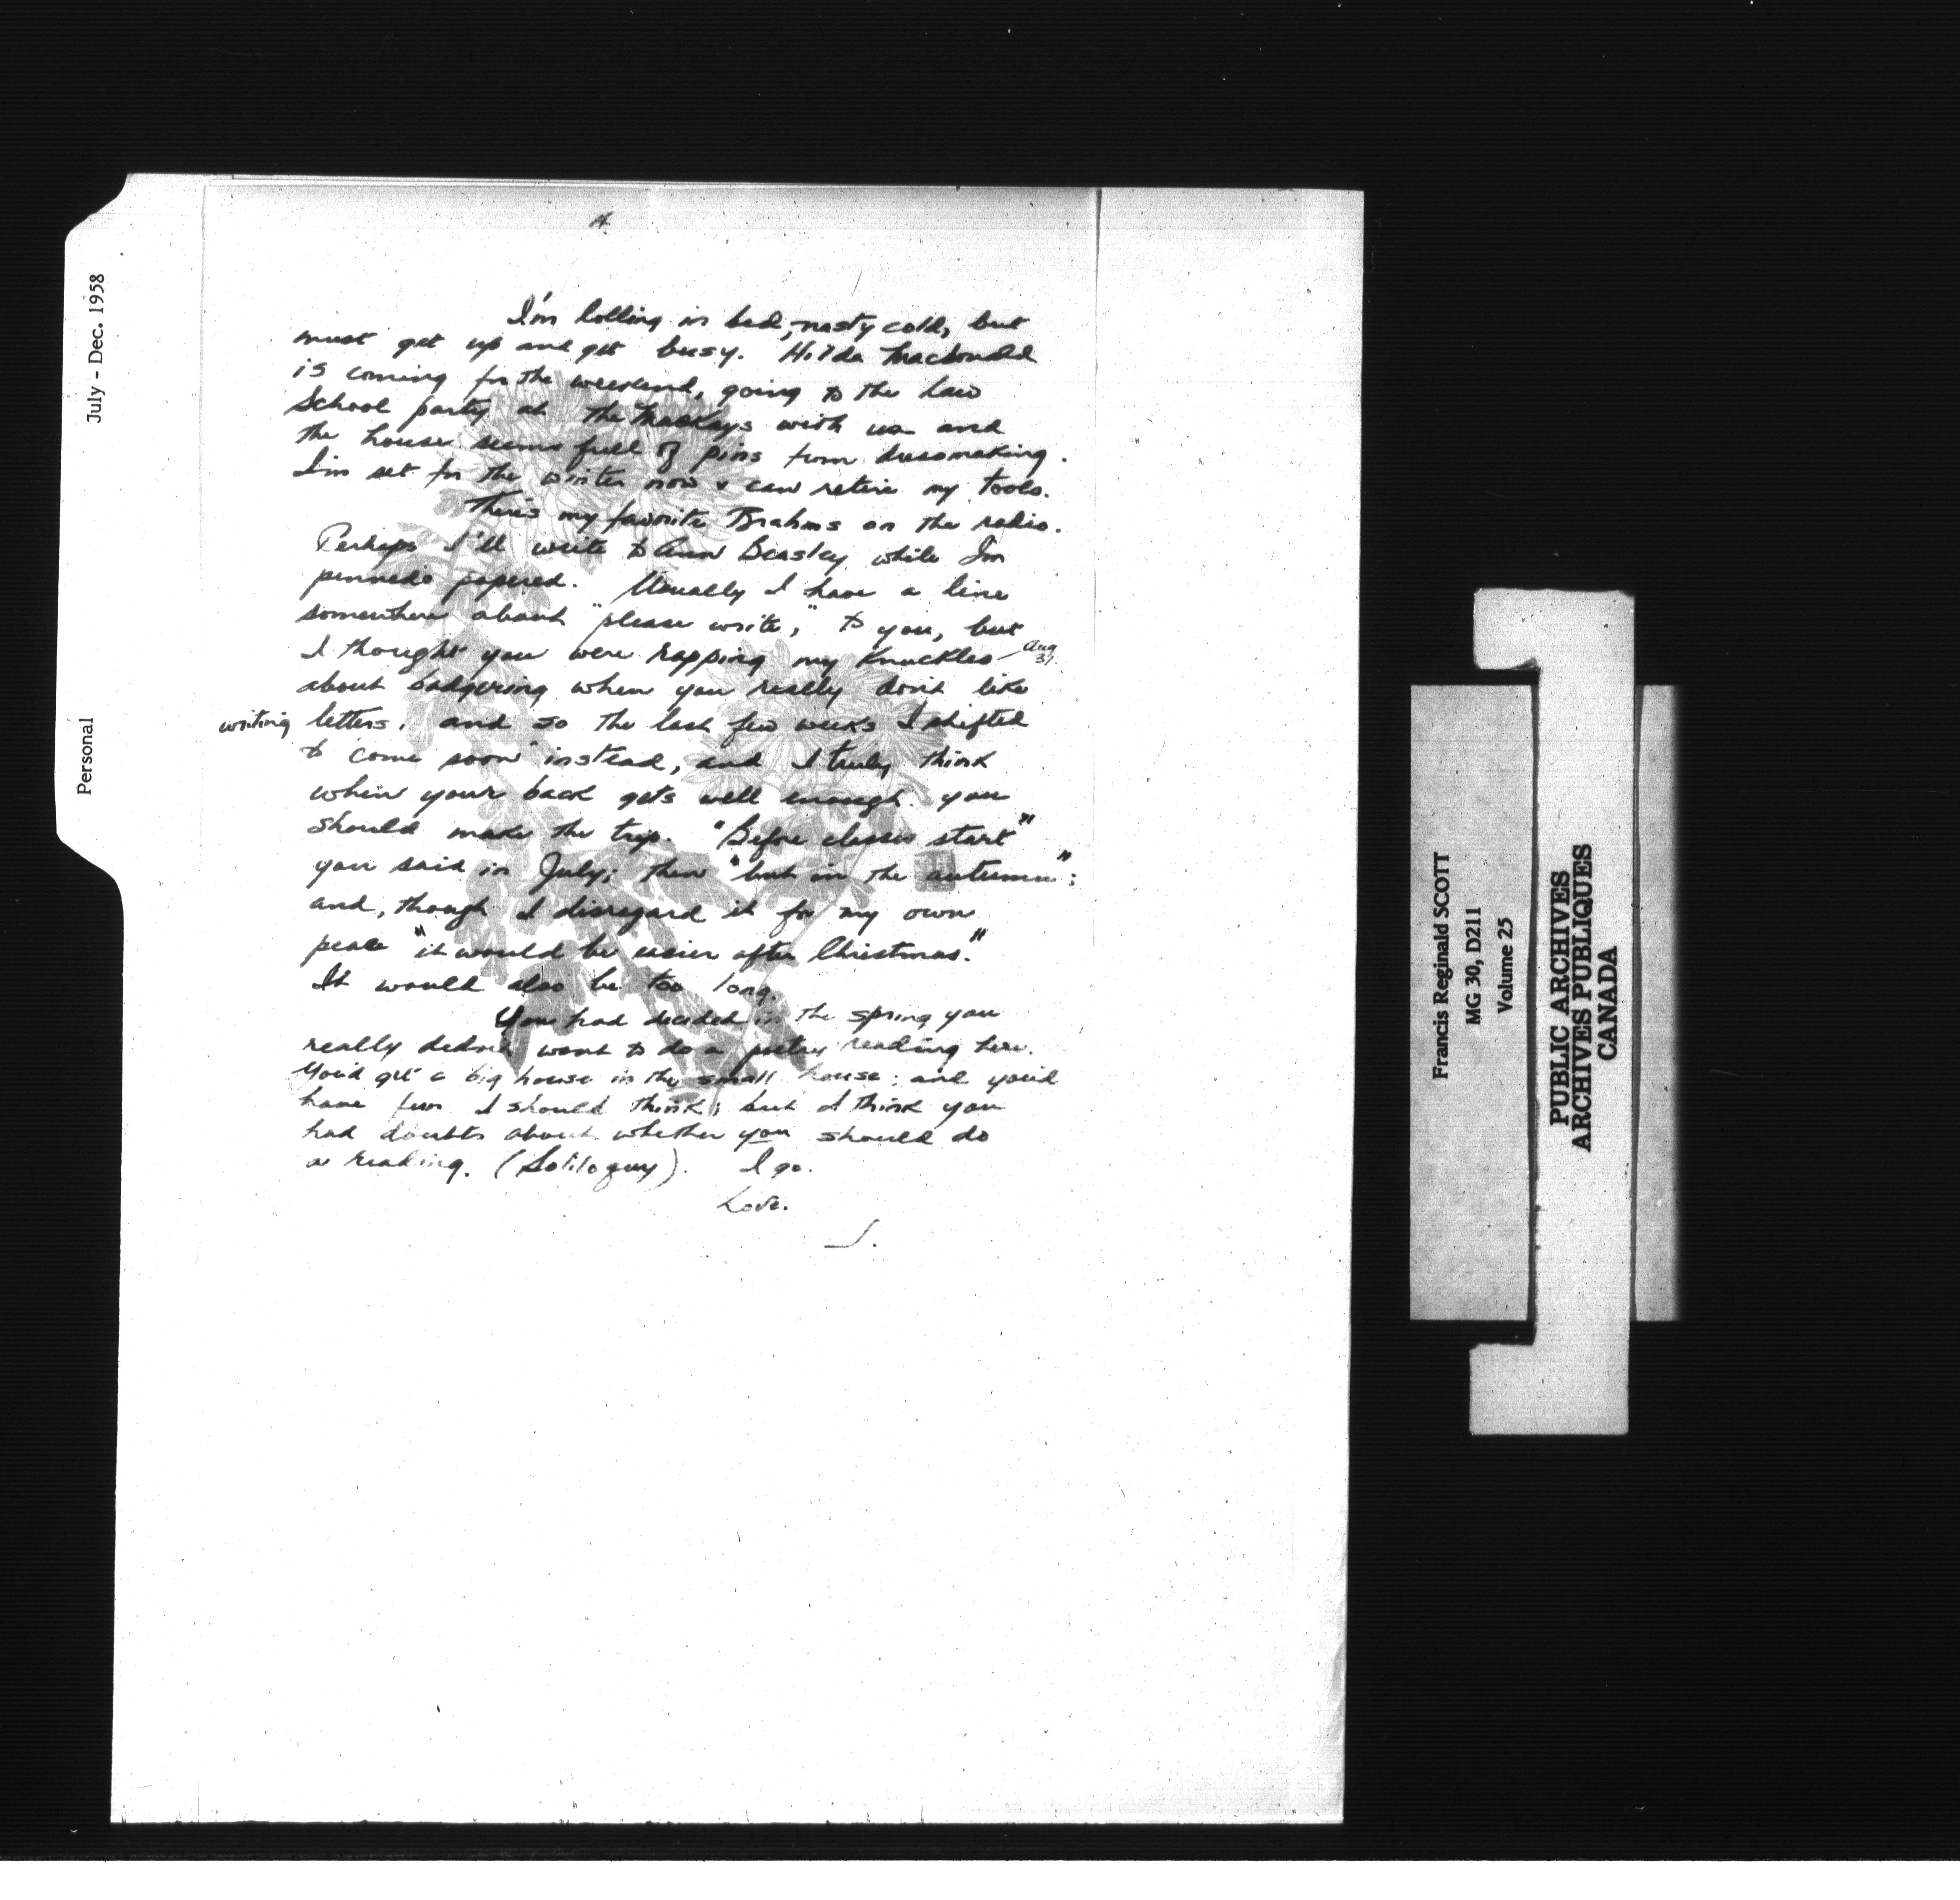 4.
I'm lolling in bed, nasty cold, but
must get up and get busy. Hilda MacDonald
is coming for the weekend, going to the Law
School party at the MacKays with us and
the house seems full of pins from dressmaking.
I'm set for the winter now & can retire my tools.
There's my favorite Brahms on the radio.
Perhaps I'll write to Ann Beasley while I'm
penned & papered. Usually I have a line
somewhere about "please write," to you, but
I thought you were rapping my knuckles — Aug 31
about badgering when you really don't like
writing letters, and so the last few weeks I shifted
to "come soon" instead, and I truly think
when your back gets well enough you
should make the trip. "Before classes start"
you said in July; then "but in the autumn";
and, though I disregard it for my own
peace "it would be easier after Christmas."
It would also be too long.
You had decided in the spring you
really didn't want to do a poetry reading here.
You'd get a big house in the small house; and you'd
have fun I should think; but I think you
had doubts about whether you should do
a reading. (Soliloquy). I go.
Love.
J.
July - Dec. 1958
Personal
Francis Reginald SCOTT
MG 30, D211
Volume 25
PUBLIC ARCHIVES
ARCHIVES PUBLIQUES
CANADA